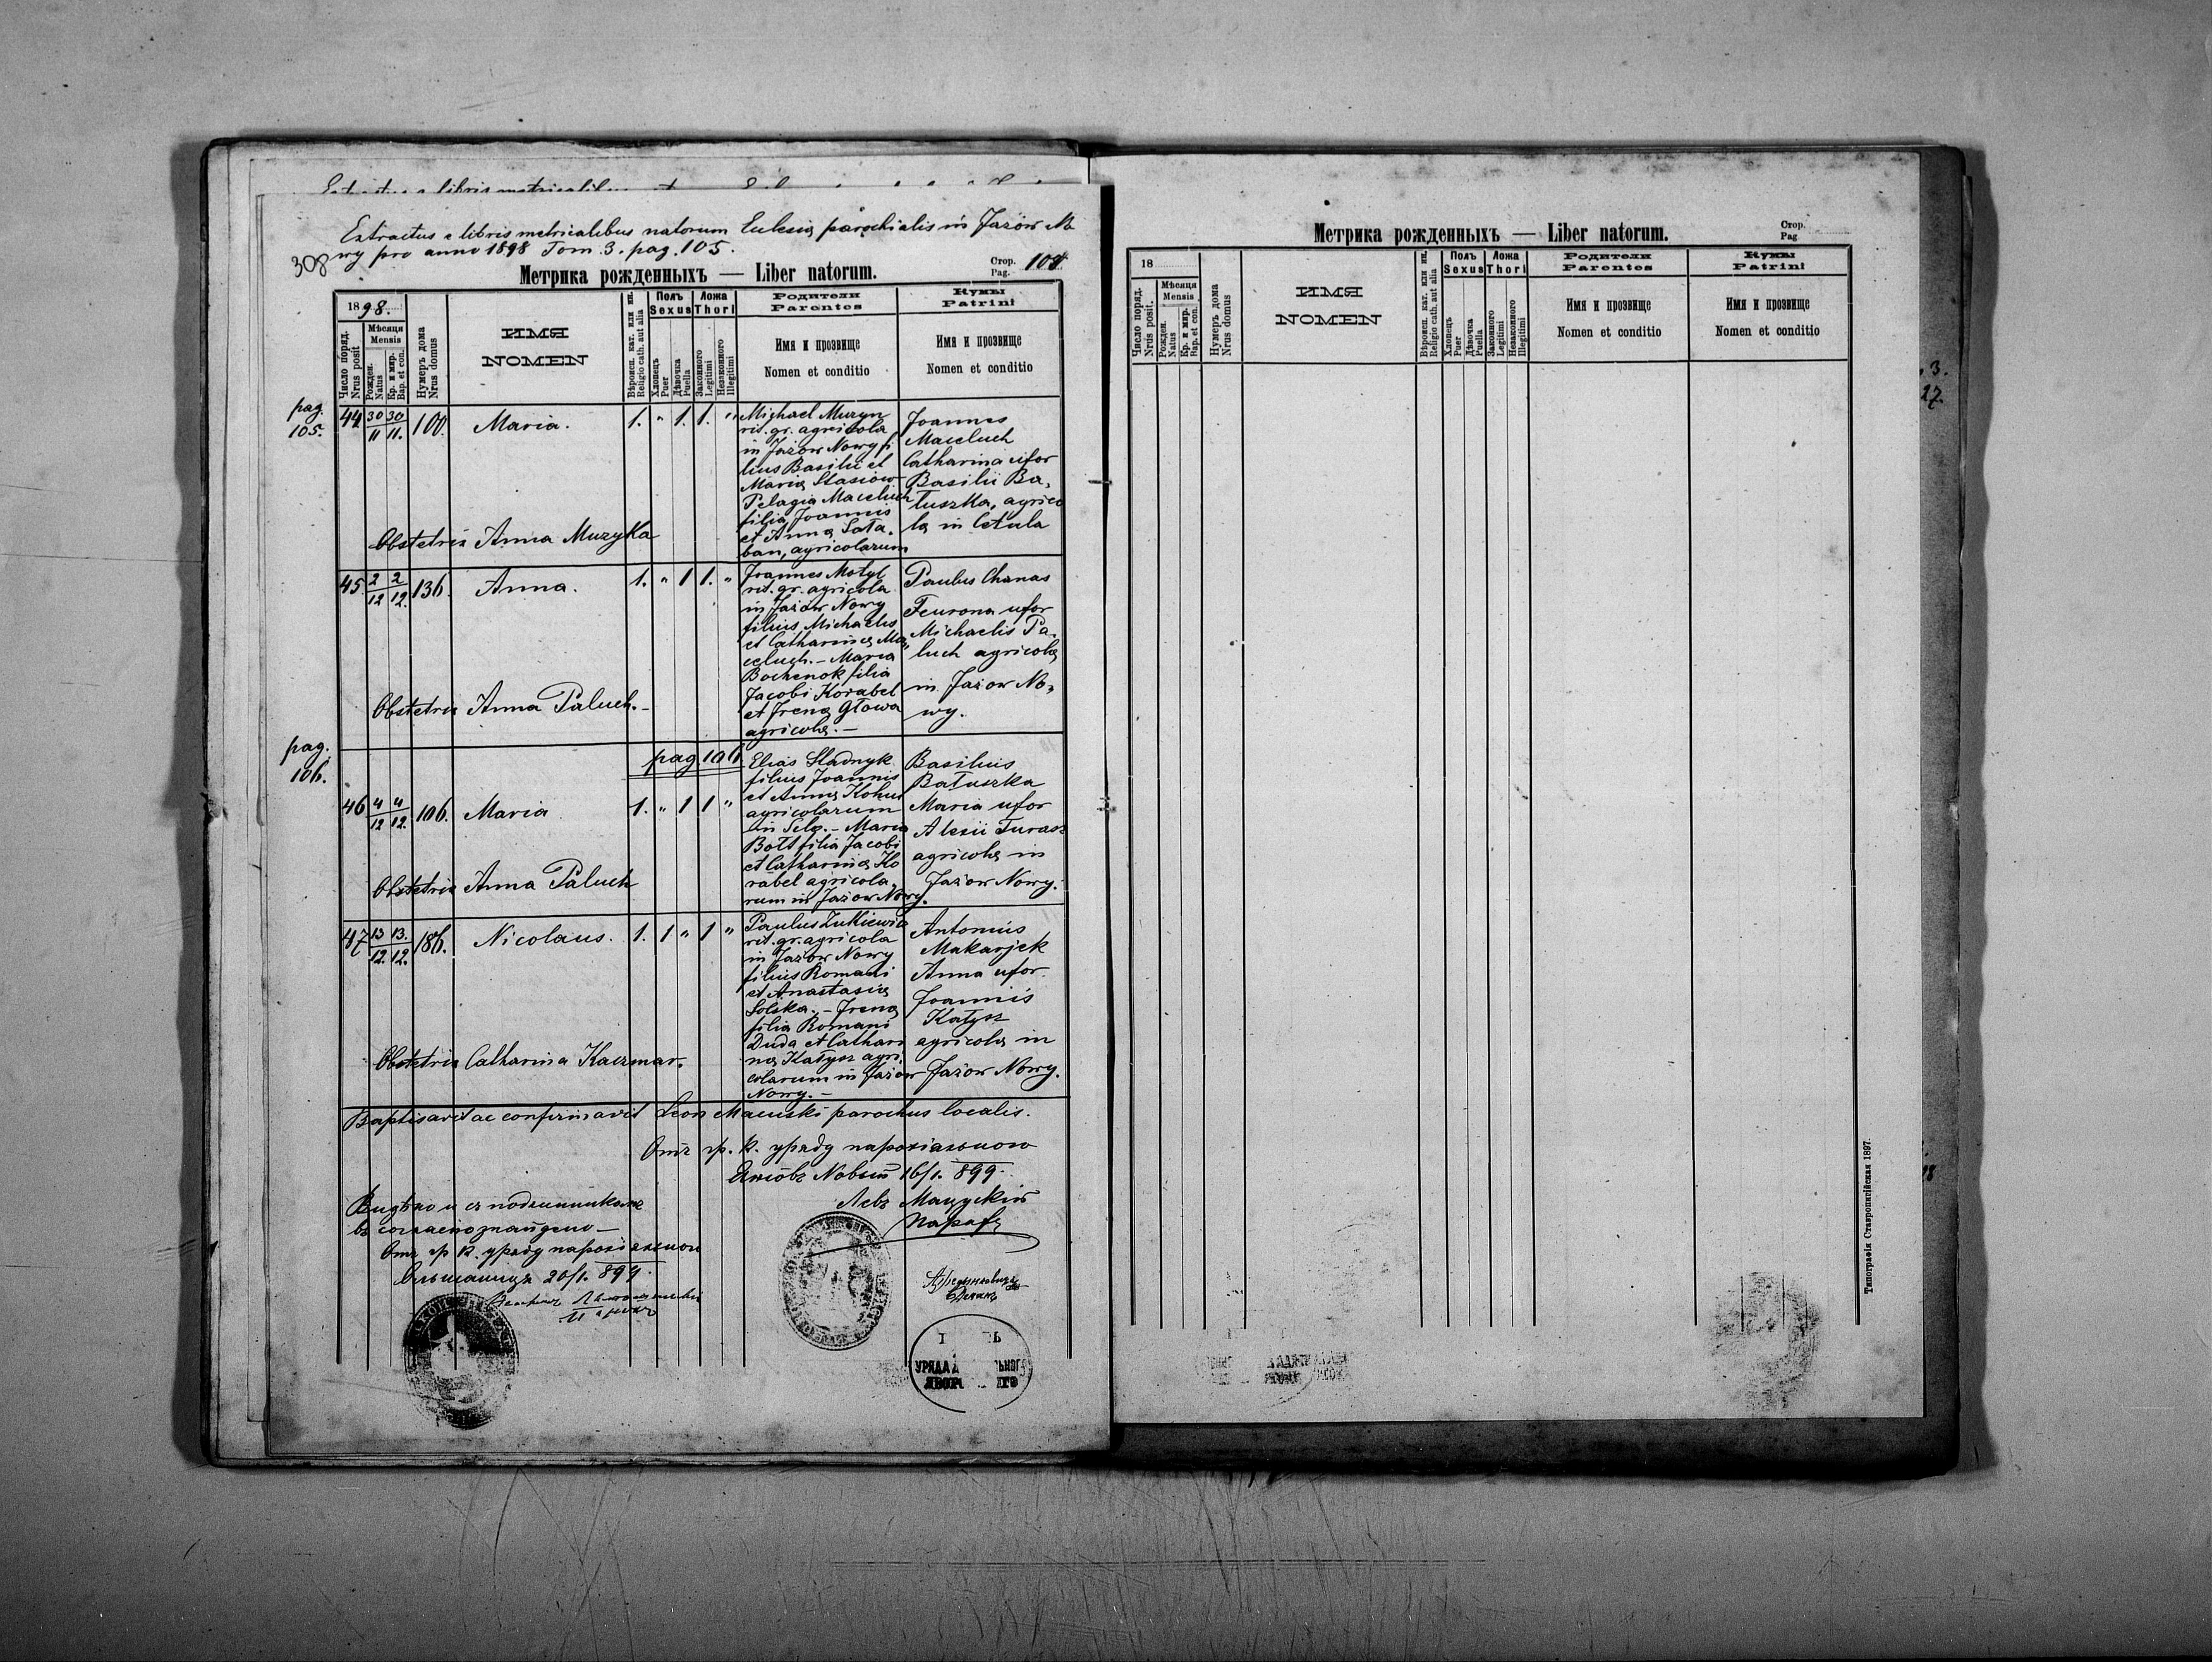 Extractus e libris metricalibus natorum Eclesia parochialis in Jazów No
wy pro anno 1898 Tom. 3. pag. 105.
308
Метрика рожденныхъ — Liber natorum.
Стор.
Pag. 108
1898.
Число поряд.
Nrus posit
Мѣсяця
Mensis
Рожден.
Natus
Кр. и мѵр.
Bap. et con.
Нумеръ дома
Nrus domus
ИМЯ
NOMEN
Вѣроисп. кат. или ин.
Religio cath. aut alia
Полъ
Sexus
Хлопецъ
Puer
Дѣвочка
Puella
Ложа
Thori
Законного
Legitimi
Незаконного
Illegitimi
Родители
Parentes
Имя и прозвище
Nomen et conditio
Кумы
Patrini
Имя и прозвище
Nomen et conditio
pag.
105.
44 30/11 30/11. 100. Maria. 1. " 1. 1. "
Michael Muzyn
rit. gr. agricola
in Jazów Nowy fi
lius Basilii et
Maria Stasiów
Pelagia Maceluch
filia Joannis
et Anna Sała
ban, agricolarum
Joannes
Maceluch
Catharina uxor
Basilii Ba,
tuszka, agrico
la in Cetula
Obstetrix Anna Muzyka
45 2/12 2/12. 136. Anna. 1. " 1 1. "
Joannes Motyl
rit. gr. agricola
in Jazów Nowy
filius Michaelis
et Catharina Ma,
celuch. - Maria
Bochenok filia
Jacobi Korabel
et Irena Głowa
agricola. —
Paulus Chanas
Feurona uxor
Michaelis Pa,
luch agricola
in Jazow No,
wy.
Obstetrix Anna Paluch. -
pag.
106.
pag. 106
46 4/12 4/12. 106. Maria 1. " 1 1 "
Elias Stadnyk
filius Joannis
et Anna Kohut
agricolarum
in Selo. - Maria
Bott filia Jacobi
et Catharina Ko
rabel agricola,
rum in Jazow Nowy.
Basilius
Batuszka
Maria uxor
Alexii Turasz
agricola in
Jazow Nowy.
Obstetrix Anna Paluch
47 13/12. 13./12. 186. Nicolaus. 1. 1 " 1 "
Paulus Zukiewicz
rit. gr. agricola
in Jazow Nowy
filius Romani
et Anastasia
Solska. - Irena
filia Romani
Duda et Cathari
na Katysz agri
colarum in Jazow
Nowy. -
Antonius
Makarjek
Anna uxor
Joannis
Katysz
agricola in
Jazow Nowy.
Obstetrix Catharina Kaczmar.
Baptisavit ac confirmavit Leon Macuski parochus localis.
Отъ гр. к. уряду парохіального
Язовъ Новый 16/1. 899.
Левъ Мацускій
парохъ
Видѣно и съ подлинникомъ
въ согласіо знайдено —
Отъ гр к. уряду парохіального
Ольшаница 20/1. 899.
УРЯДА
Метрика рожденныхъ — Liber natorum.
Стор.
Pag
18
Число поряд.
Nrus posit.
Мѣсяця
Mensis
Рожден.
Natus
Кр. и мѵр.
Bap. et con.
Нумеръ дома
Nrus domus
ИМЯ
NOMEN
Вѣроисп. кат. или ин.
Religio cath. aut alia
Полъ
Sexus
Хлопецъ
Puer
Дѣвочка
Puella
Ложа
Thori
Законного
Legitimi
Незаконного
Illegitimi
Родители
Parentes
Имя и прозвище
Nomen et conditio
Кумы
Patrini
Имя и прозвище
Nomen et conditio
Типографія Ставропигійская 1897.
3.
27.